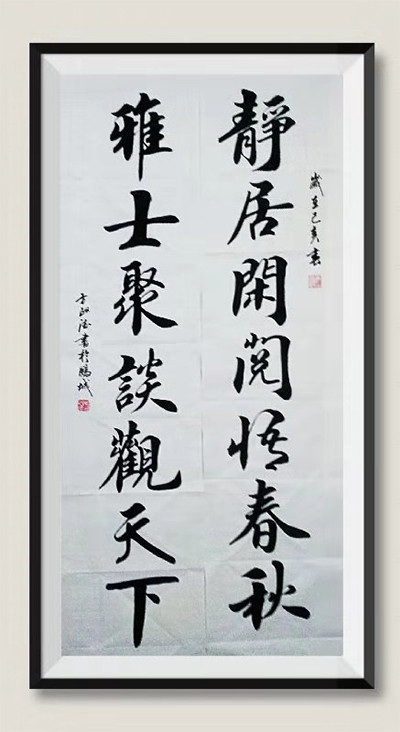 歲在己亥
靜居閑閱悟春秋
雅士聚談觀天下
書於鵬城